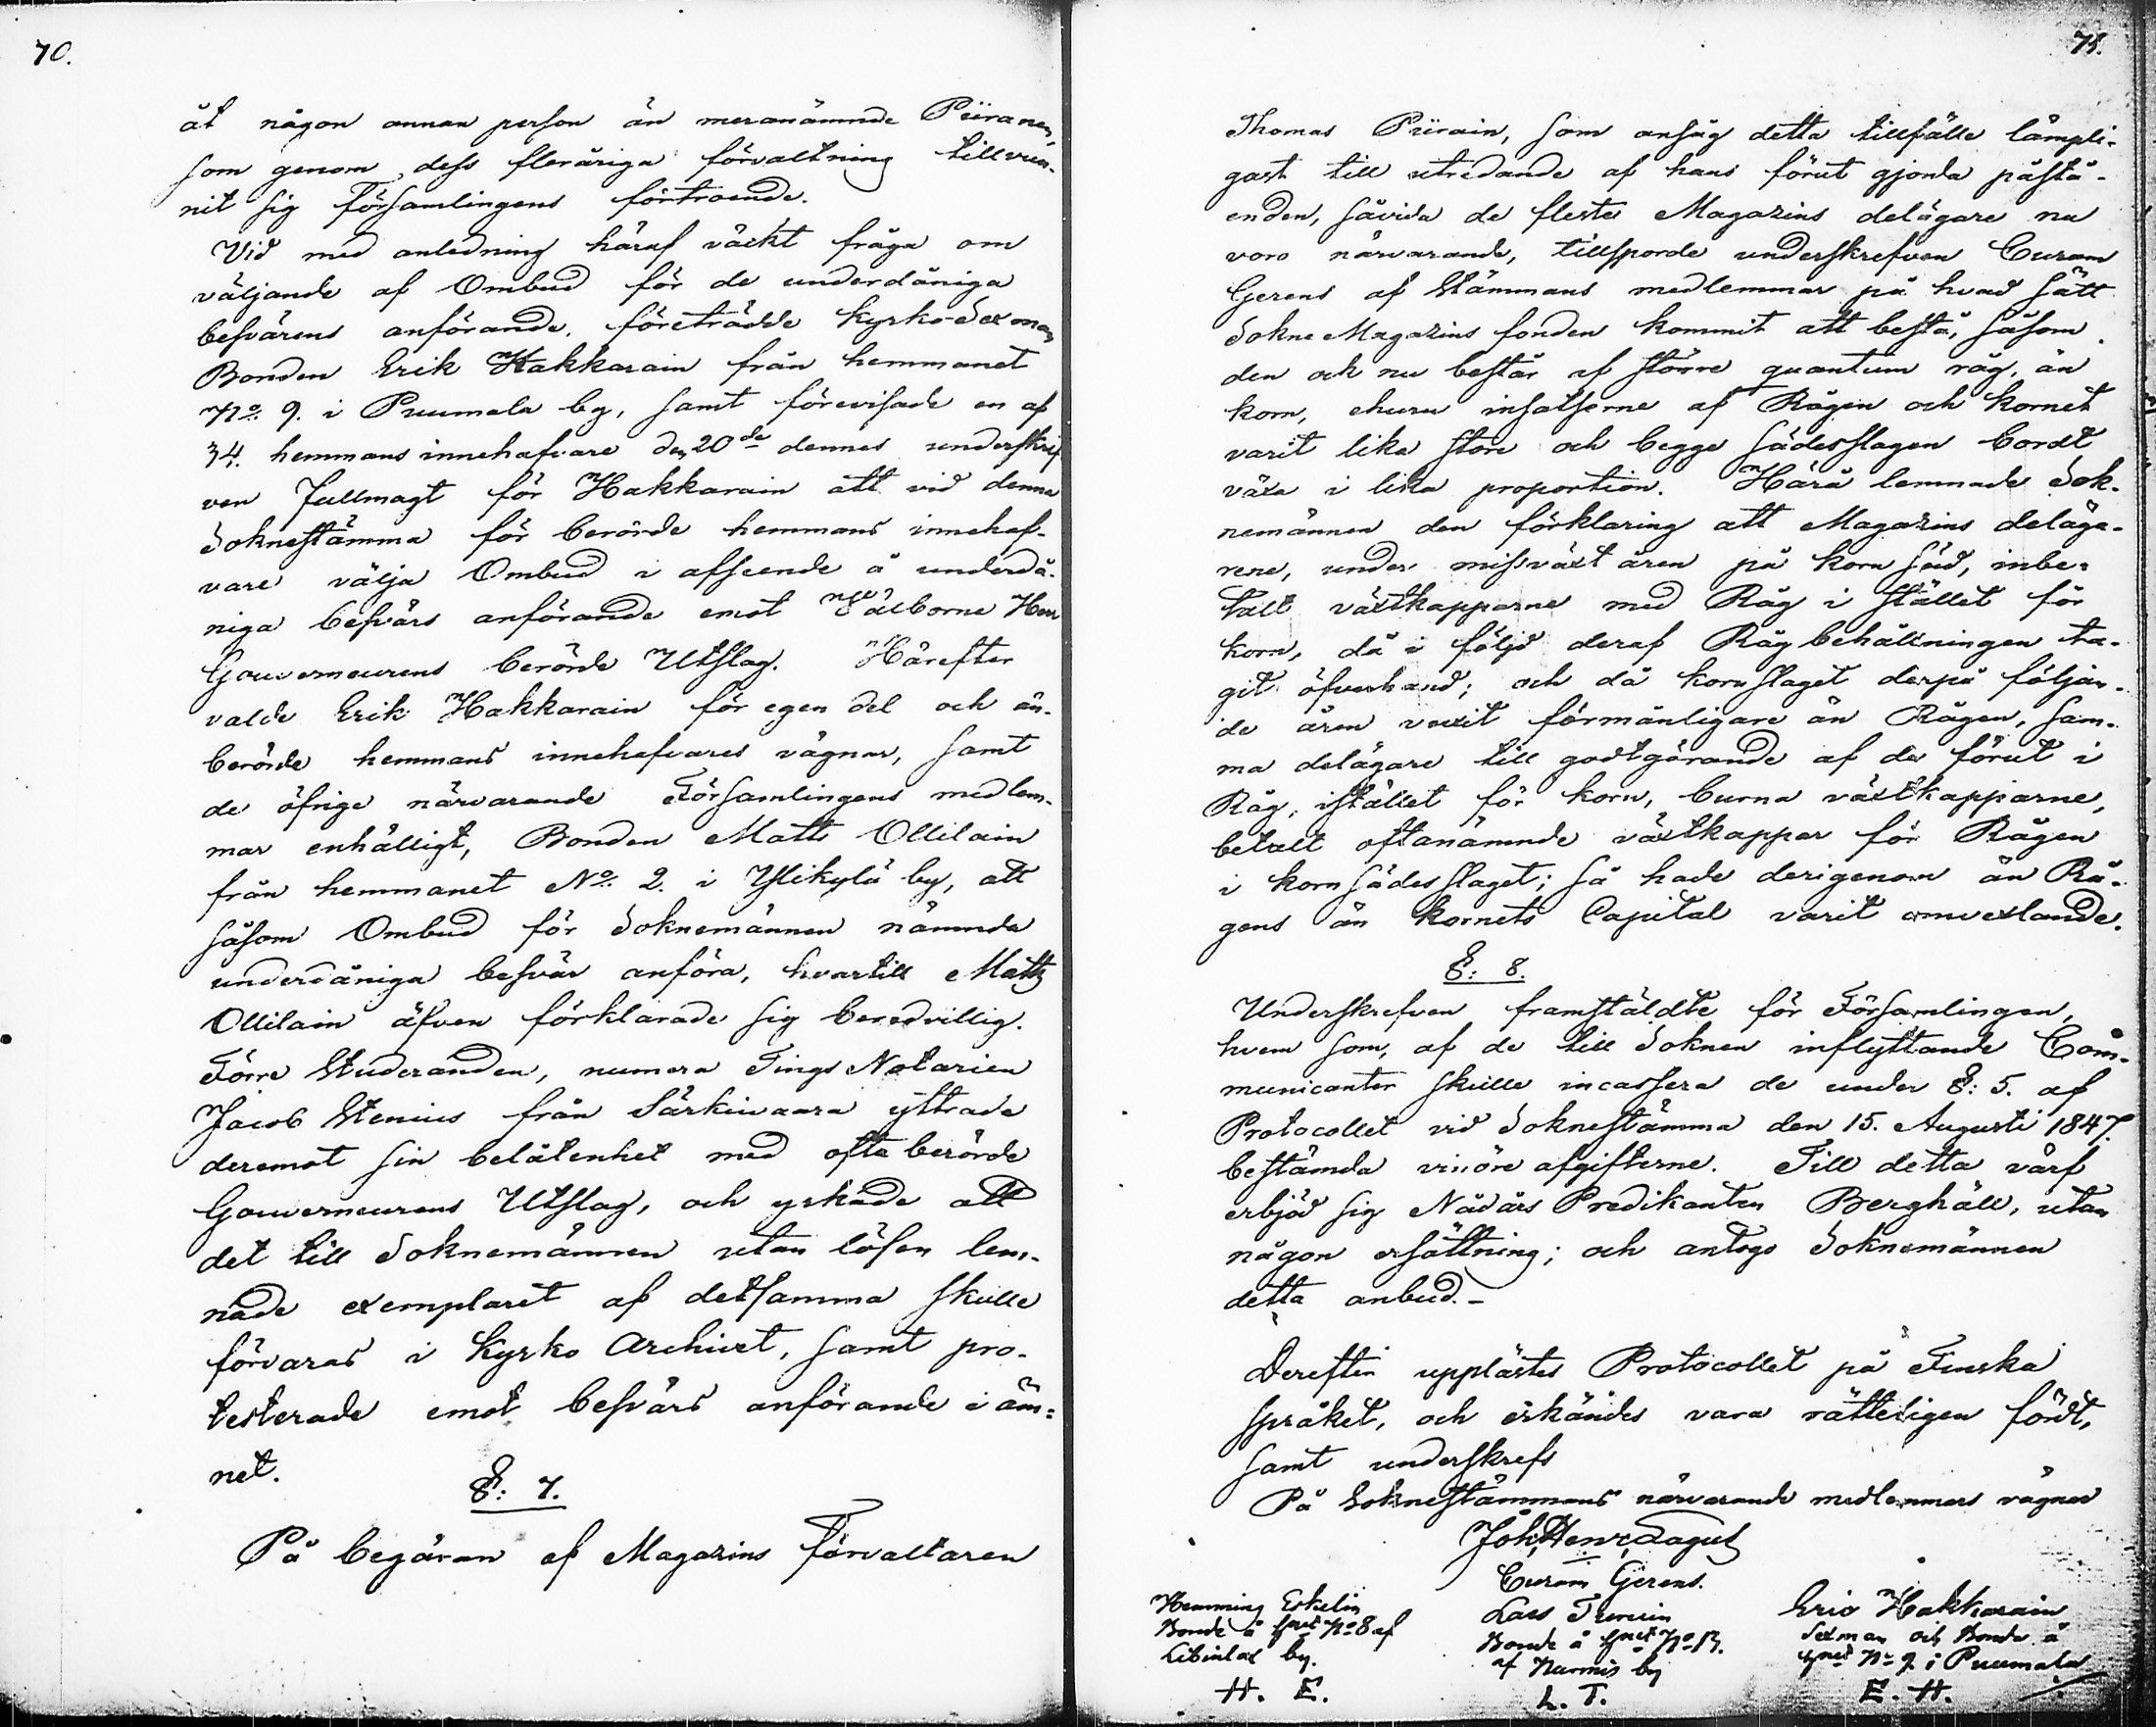 70.
åt någon annan person än meranämnde Piiranen,
som genom dess fleråriga förvaltning tillvun-
nit sig Församlingens förtroende.
Vid med anledning häraf väckt fråga om
väljande af Ombud för de underdåniga
besvärens anförande, företrädde Kyrko-Sexman,
Bonden Erik Hakkarain från hemmanet
No. 9. i Puumala by, samt förevisade en af
34. hemmans innehafvare den 20de dennes underskrif
ven fullmagt för Hakkarain att vid denna
Soknestämma för berörde hemmans innehaf-
vare välja Ombud i afseende å underdå-
niga besvärs anförande emot Välborne Herr
Gouverneurens berörde Utslag. Härefter
valde Erik Hakkarain för egen del och å n-
berörde hemmans innehafvares vägnar, samt
de öfrige närvarande Församlingens medlem-
mar enhälligt, Bonden Matts Ollilain
från hemmanet No. 2. i Ylikylä by, att
såsom Ombud för Soknemännen nämnda
underdåniga besvär anföra, hvartill Matts
Ollilain äfven förklarade sig beredvillig.
Förre Studeranden, numera Tings Notarien
Jacob Stenius från Särkivaara yttrade
deremot sin belåtenhet med ofta berörde
Gouverneurens Utslag, och yrkade att
det till Soknemännen utan lösen lem-
nade exemplaret af detsamma skulle
förvaras i Kyrko Archivet, samt pro-
testerade emot besvärs anförande i äm-
net.
§: 7.
På begäran af Magazins Förvaltaren
71.
Thomas Piirain, som ansåg detta tillfälle lämpli-
gast till utredande af hans förut gjorda påstå-
enden, såvida de fleste Magazins delägare nu
voro närvarande, tillsporde underskrefven Curam
Gerens af Stämmans medlemmar på hvad sätt
Sokne Magazins fonden kommit att bestå, såsom
den och nu består af större quantum råg, än
korn, ehuru insatserne af Rågen och kornet
varit lika store och begge sädesslagen bordt
växa i lika proportion. Härå lemnade Sok-
nemännen den förklaring att Magazins deläga-
rene, under missväxt åren på korn säd, inbe-
talt växtkapparne med Råg i stället för
korn, då i följd deraf Råg behållningen ta-
git öfverhand; och då kornslaget derpå följan-
de åren varit förmånligare än Rågen, sam-
ma delägare till godtgörande af de förut i
Råg, istället för korn, burna växtkapparne,
betalt oftanämnde växtkappar för Rågen
i kornsädesslaget; så hade derigenom än Rå-
gens än kornets Capital varit omvexlande.
§: 8.
Underskrefven framstäldte för Församlingen,
hvem som, af de till Soknen inflyttande Com-
municanter skulle incassera de under §: 5. af
Protocollet vid Soknestämma den 15. Augusti 1847.
bestämda vinöre afgifterne. Till detta värf
erbjöd sig Nådårs Predikanten Berghäll, utan
någon ersättning; och antogo Soknemännen
detta anbud.-
Derefter upplästes Protocollet på Finska
språket, och erkändes vara rätteligen fördt,
samt underskrefs
På Soknestämmans närvarande medlemmars vägnar
Joh. Henr.
Curam Gerens.
Henning Eskelin
Bonde å hmet No 8 af
by.
H. E.
Lars
Bonde å hmet No 13.
af Nurmis by
L. T.
Eric Hakkarain
Sexman och Bonde å
hmet No 9 i Puumala
E. H.